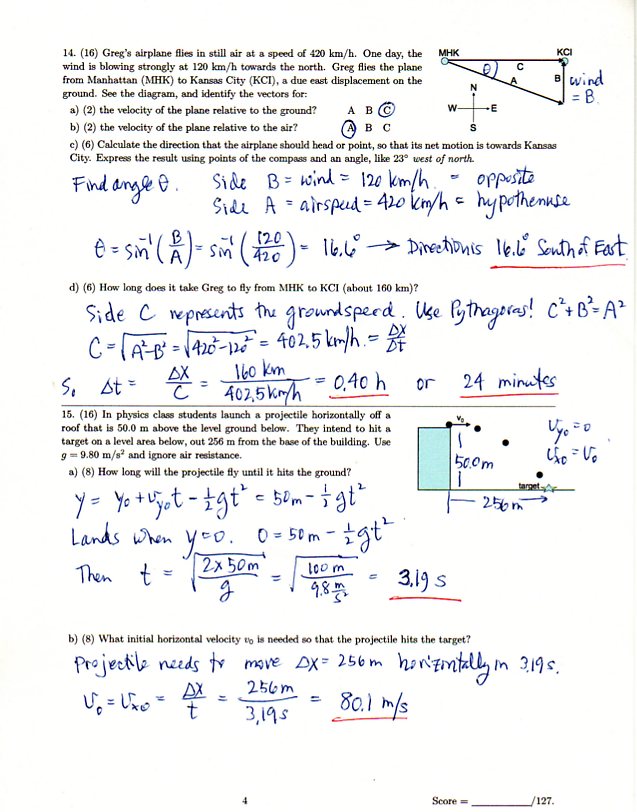 14. (16) Greg's airplane flies in still air at a speed of 420 km/h. One day, the
wind is blowing strongly at 120 km/h towards the north. Greg flies the plane
from Manhattan (MHK) to Kansas City (KCI), a due east displacement on the
ground. See the diagram, and identify the vectors for:
MHK KCI
θ C
A B wind
= B.
N
W E
S
a) (2) the velocity of the plane relative to the ground? A B C
b) (2) the velocity of the plane relative to the air? A B C
c) (6) Calculate the direction that the airplane should head or point, so that its net motion is towards Kansas
City. Express the result using points of the compass and an angle, like 23° west of north.
Find angle θ. Side B = wind = 120 km/h. = opposite
Side A = airspeed = 420 km/h = hypothenuse
θ = sin⁻¹(B/A) = sin⁻¹(120/420) = 16.6° → Direction is 16.6° South of East.
d) (6) How long does it take Greg to fly from MHK to KCI (about 160 km)?
Side C represents the groundspeed. Use Pythagoras! C²+B²=A²
C = √A²-B² = √420²-120² = 402.5 km/h. = Δx/Δt
So Δt = Δx/C = 160 km/402.5 km/h = 0.40 h or 24 minutes
15. (16) In physics class students launch a projectile horizontally off a
roof that is 50.0 m above the level ground below. They intend to hit a
target on a level area below, out 256 m from the base of the building. Use
g = 9.80 m/s² and ignore air resistance.
v₀
50.0m
target
256 m
Vyo = 0
Vxo = Vo
a) (8) How long will the projectile fly until it hits the ground?
y = yo + Vyo t - ½gt² = 50m - ½gt²
Lands when y=0. 0 = 50m - ½gt²
Then t = √2x50m/g = √100m/9.8 m/s² = 3.19 s
b) (8) What initial horizontal velocity v₀ is needed so that the projectile hits the target?
Projectile needs to move Δx = 256 m horizontally in 3.19s.
Vo = Vxo = Δx/t = 256m/3.19s = 80.1 m/s
4 Score = ________/127.